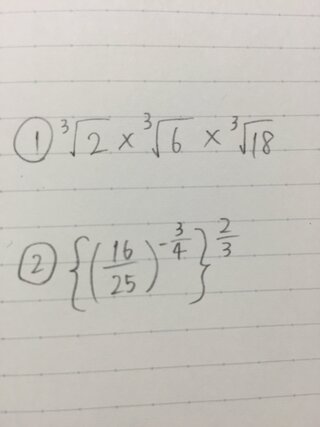 ① ∛2 × ∛6 × ∛18
② {(16/25)^(-3/4)}^(2/3)